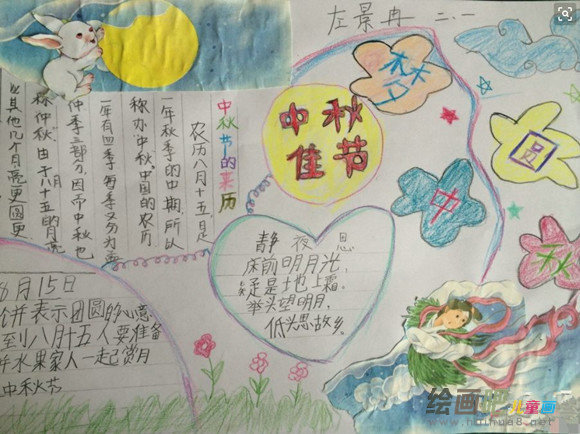 左景冉 二.一
梦
圆
中
秋
中秋
佳节
中秋节的来历
农历八月十五是
一年秋季的中期,所以
称办中秋中国的农历
一年有四季每季又分为孟
仲季三部分因而中秋也
称仲秋.由于八月十五的月亮
比其他几个月亮更圆更
静夜思
床前明月光,
疑是地上霜.
举头望明月,
低头思故乡.
8月15日
饼表示团圆的心意
到八月十五人要准备
水果家人一起赏月
中秋节
绘画吧儿童画